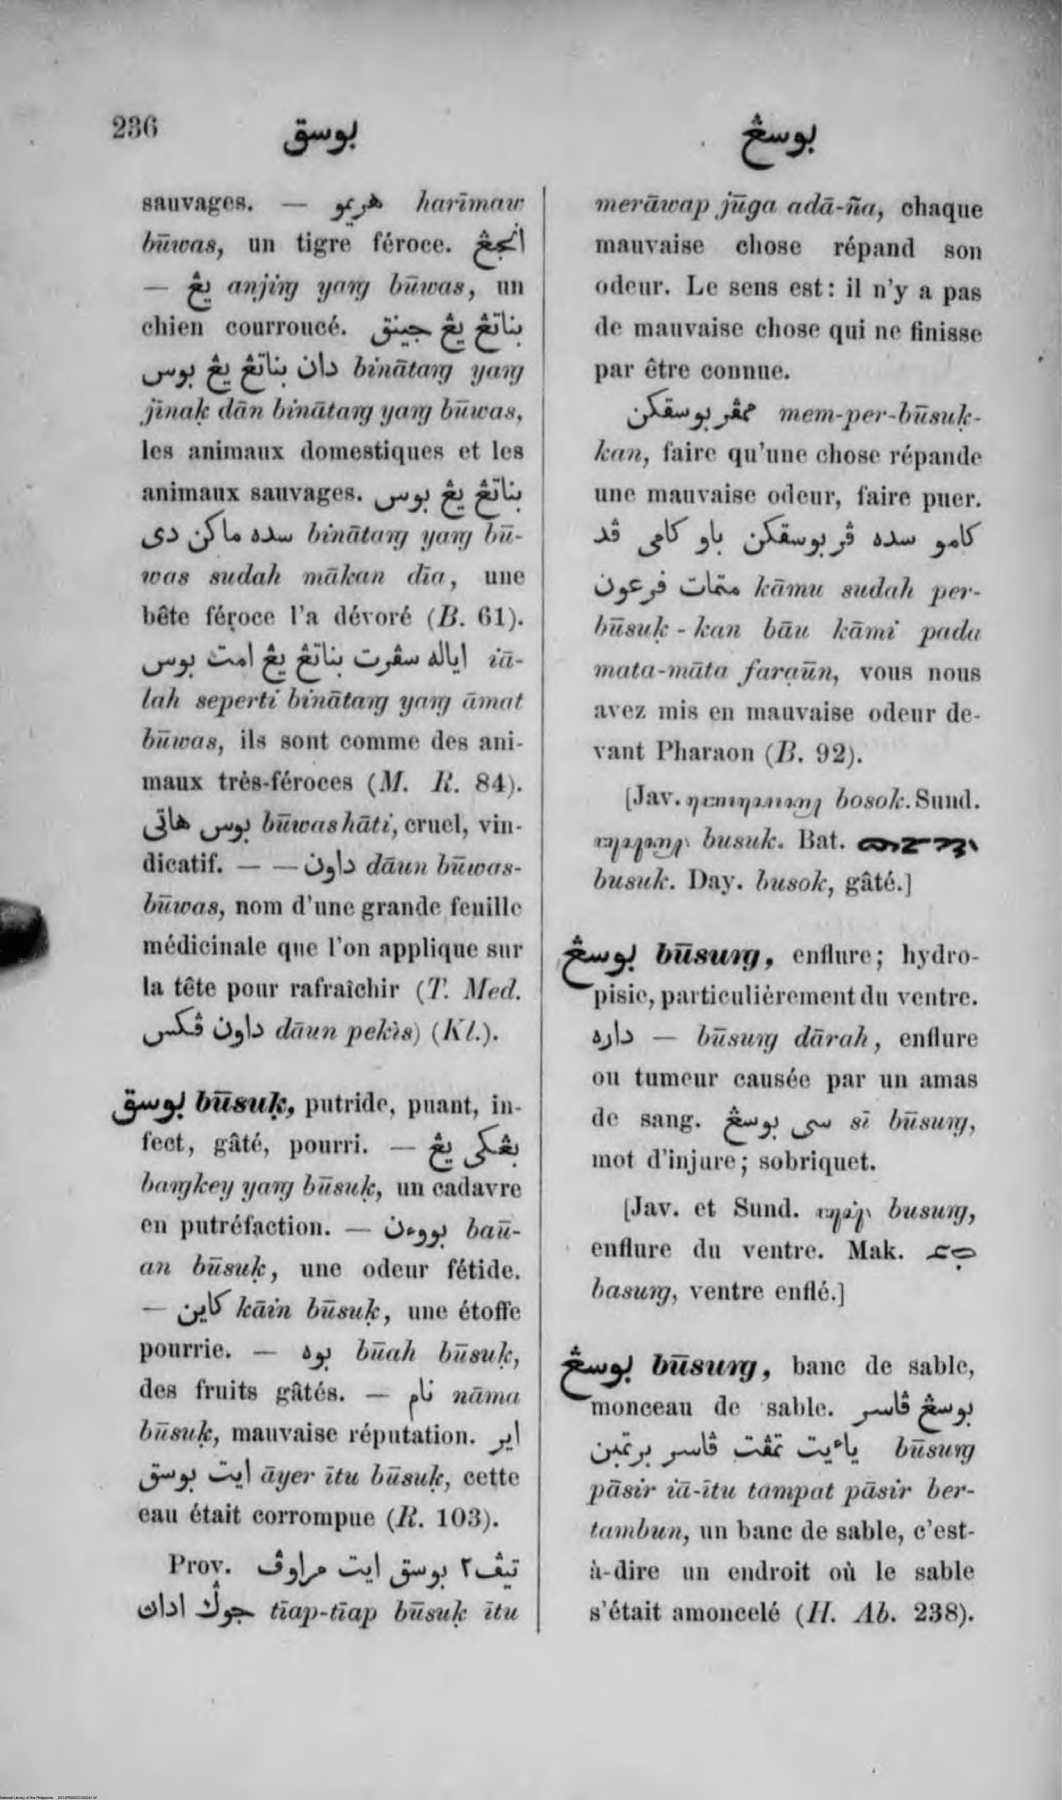 236
بوسق
بوسڠ
sauvages. — هريمو harīmaw
būwas, un tigre féroce. انجڠ
— يڠ anjiṅg yaṅg būwas, un
chien courroucé. بناتڠ يڠ جينق
دان بناتڠ يڠ بوس binātaṅg yaṅg
jīnaḳ dān binātaṅg yaṅg būwas,
les animaux domestiques et les
animaux sauvages. بناتڠ يڠ بوس
سده ماكن دى binātaṅg yaṅg bū-
was sudah mākan dīa, une
bête féroce l'a dévoré (B. 61).
اياله سڤرت بناتڠ يڠ امت بوس iā-
lah seperti binātaṅg yaṅg āmat
būwas, ils sont comme des ani-
maux très-féroces (M. R. 84).
بوس هاتى būwas hāti, cruel, vin-
dicatif. — — داون dāun būwas-
būwas, nom d'une grande feuille
médicinale que l'on applique sur
la tête pour rafraîchir (T. Med.
داون ڤكس dāun pekìs) (Kl.).
بوسق būsuḳ, putride, puant, in-
fect, gâté, pourri. — بڠكى يڠ
baṅgkey yaṅg būsuḳ, un cadavre
en putréfaction. — بووءن baū-
an būsuḳ, une odeur fétide.
— كاين kāin būsuḳ, une étoffe
pourrie. — بوه būah būsuḳ,
des fruits gâtés. — نام nāma
būsuḳ, mauvaise réputation. اير
ايت بوسق āyer ītu būsuḳ, cette
eau était corrompue (R. 103).
Prov. تيڤ٢ بوسق ايت مراوڤ
جوݢ اداڽ tīap-tīap būsuḳ ītu
merāwap jūga adā-ña, chaque
mauvaise chose répand son
odeur. Le sens est: il n'y a pas
de mauvaise chose qui ne finisse
par être connue.
ممڤربوسقكن mem-per-būsuḳ-
kan, faire qu'une chose répande
une mauvaise odeur, faire puer.
كامو سده ڤربوسقكن باو كامى ڤد
متمات فرعون kāmu sudah per-
būsuḳ-kan bāu kāmi pada
mata-māta faraūn, vous nous
avez mis en mauvaise odeur de-
vant Pharaon (B. 92).
[Jav. bosok. Sund.
busuk. Bat.
busuk. Day. busok, gâté.]
بوسڠ būsuṅg, enflure; hydro-
pisie, particulièrement du ventre.
داره — būsuṅg dārah, enflure
ou tumeur causée par un amas
de sang. سى بوسڠ sī būsuṅg,
mot d'injure; sobriquet.
[Jav. et Sund. busuṅg,
enflure du ventre. Mak.
basuṅg, ventre enflé.]
بوسڠ būsuṅg, banc de sable,
monceau de sable. بوسڠ ڤاسر
ياءيت تمڤت ڤاسر برتمبن būsuṅg
pāsir iā-ītu tampat pāsir ber-
tambun, un banc de sable, c'est-
à-dire un endroit où le sable
s'était amoncelé (H. Ab. 238).